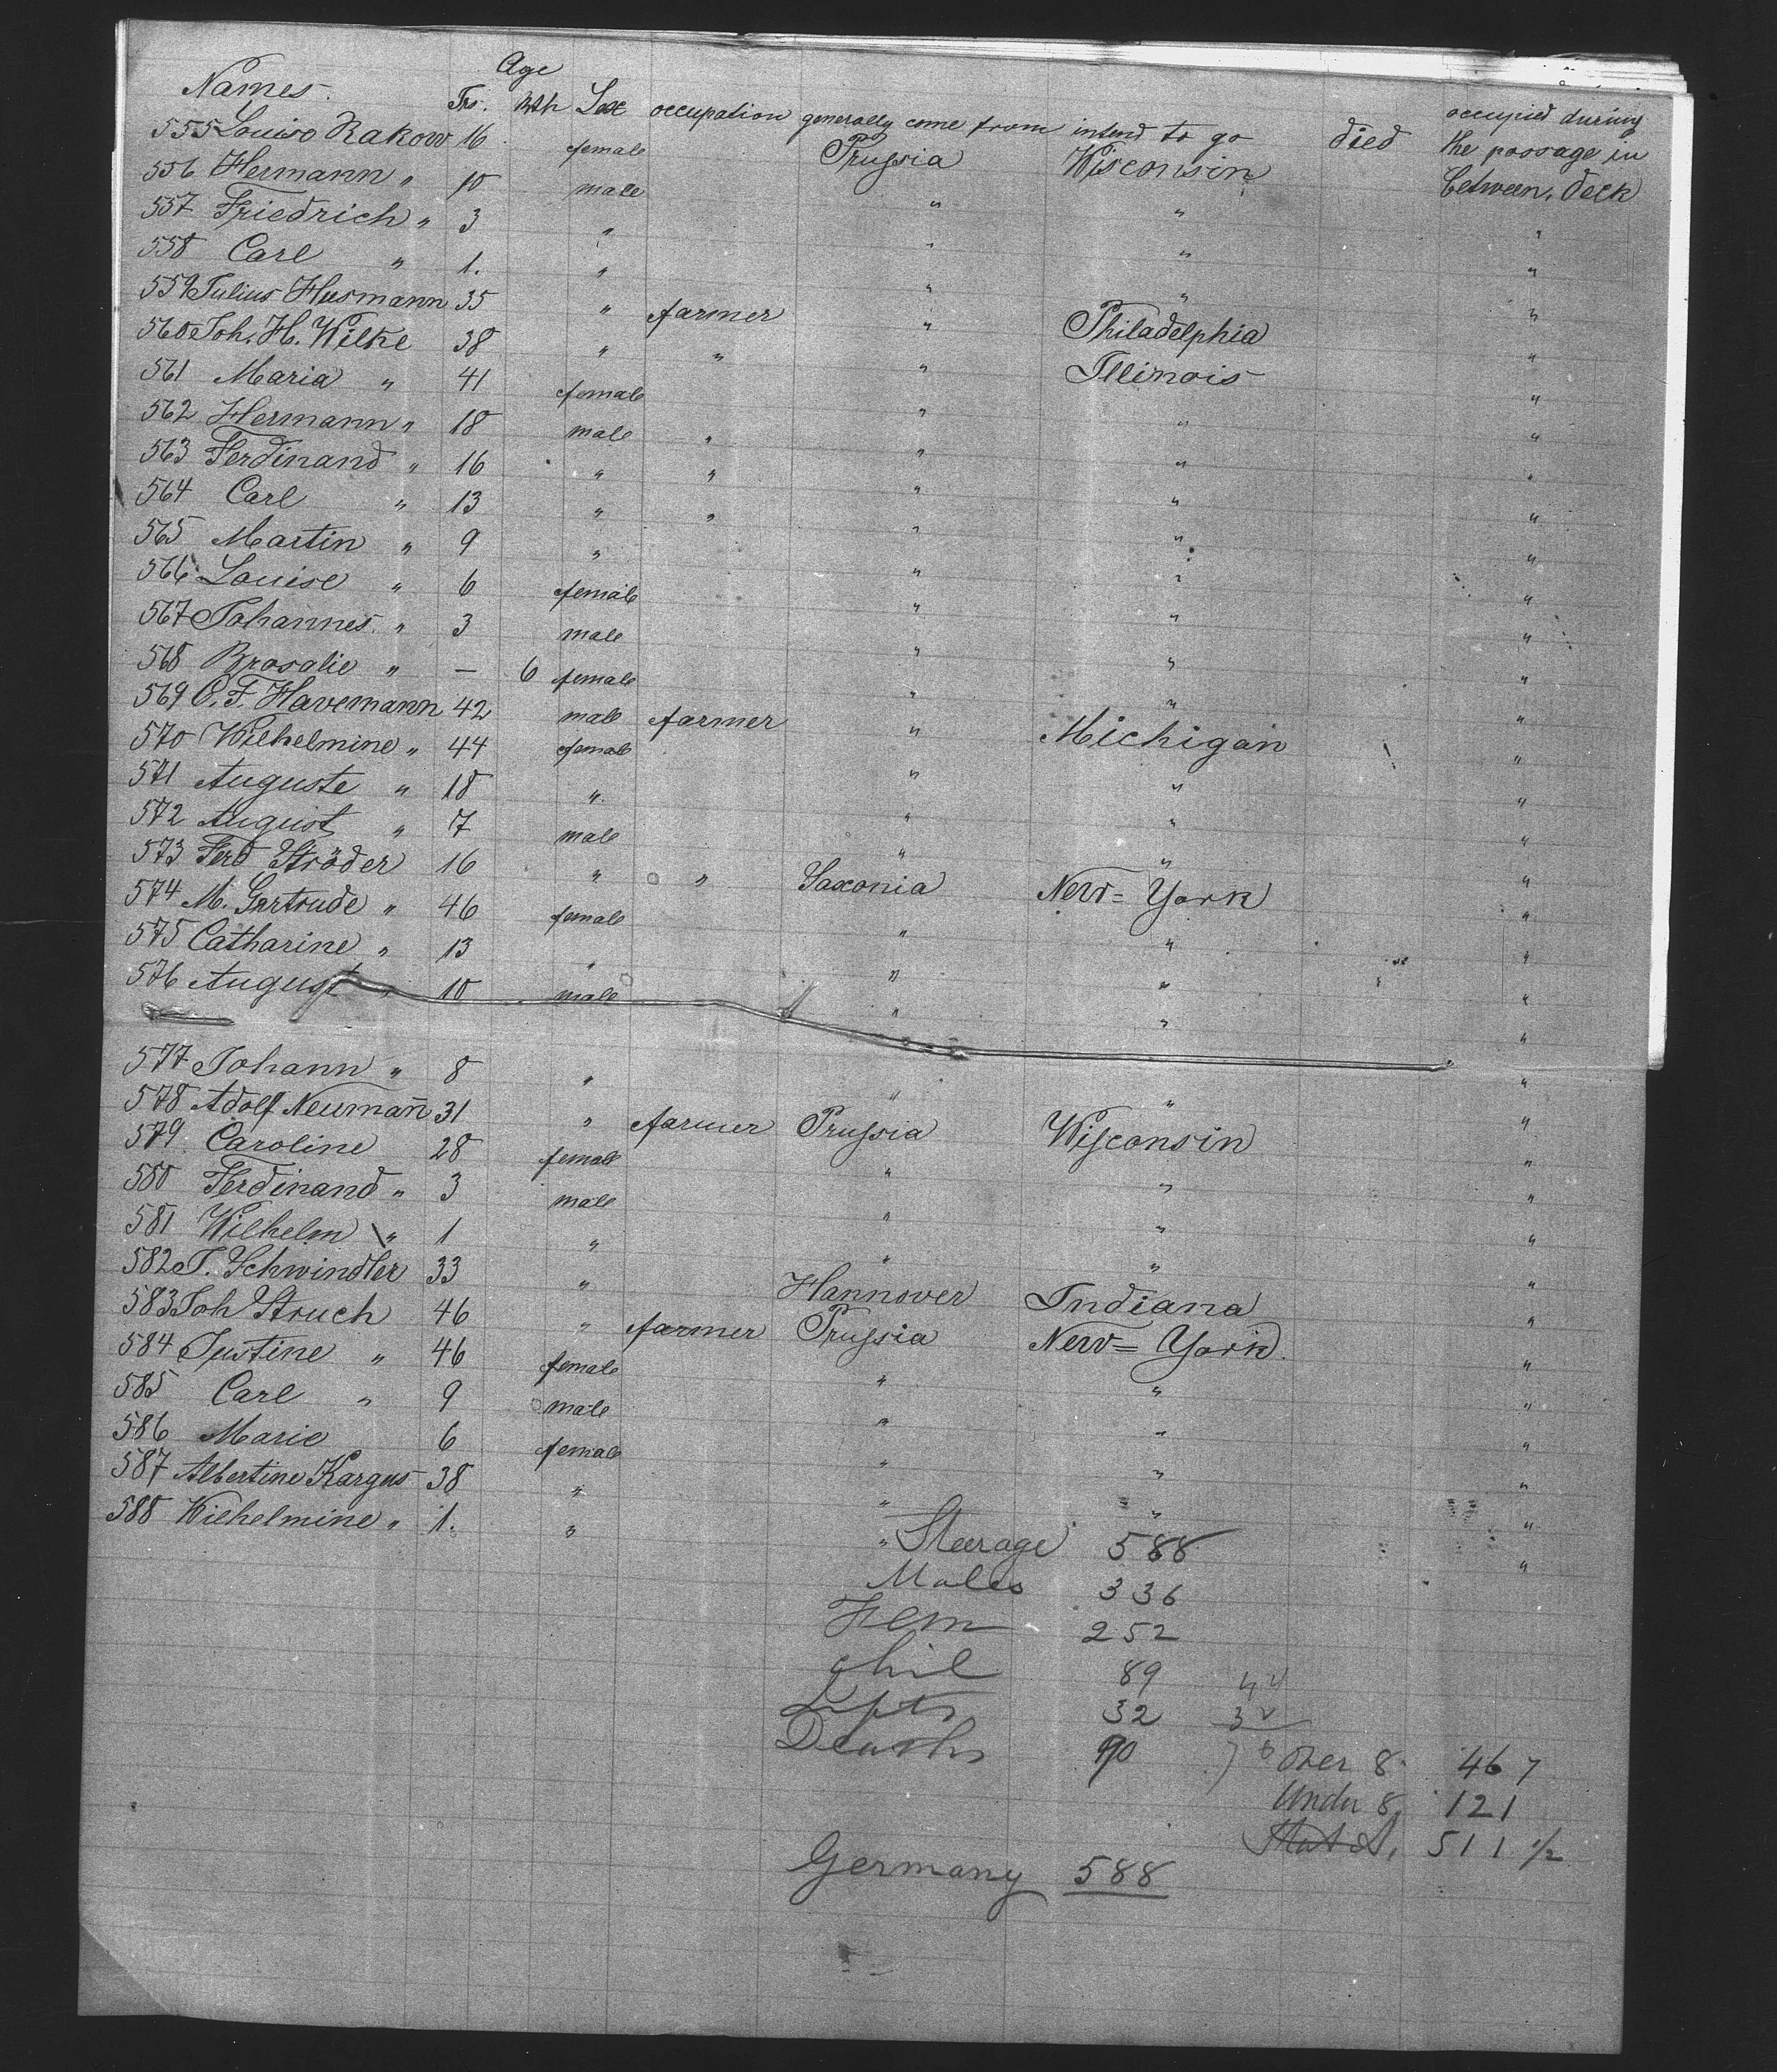 Names. Age occupied during
Yrs. Mth Sex occupation generally come from intend to go died the passage in
555 Louise Rakow 16 female Prussia Wisconsin between, deck
556 Hermann " 10 male " " "
557 Friedrich " 3 " " " "
558 Carl " 1. " " " "
559 Julius Husmann 35 " farmer " Philadelphia "
560 Joh. H. Wilke 38 " " " Illinois "
561 Maria " 41 female " " "
562 Hermann " 18 male " " " "
563 Ferdinand " 16 " " " " "
564 Carl " 13 " " " " "
565 Martin " 9 " " " "
566 Louise " 6 female " " "
567 Johannes. " 3 male " " "
568 " — 6 female " " "
569 C. F. Havemann 42 male farmer " Michigan "
570 Wilhelmine " 44 female " " "
571 Auguste " 18 " " " "
572 August " 7 male " " "
573 Ferd Ströder 16 " " Saxonia New=York "
574 M. Gertrude " 46 female " " "
575 Catharine " 13 " " " "
576 August " 10 male " " "
577 Johann " 8 " " " "
578 Adolf Neumann 31 " farmer Prussia Wisconsin "
579 Caroline 28 female " " "
580 Ferdinand " 3 male " " "
581 Wilhelm " 1 " " " "
582 J. Schwindler 33 " Hannover Indiana "
583 Joh Struch 46 " farmer Prussia New=York. "
584 Justine " 46 female " " "
585 Carl " 9 male " " "
586 Marie 6 female " " "
587 Albertine Kargus 38 " " " "
588 Wilhelmine " 1. " " "
Steerage 588
Males 336
Fem 252
Chil 89 44
Infts 32 32
Deaths 76 Over 8 467
Under 8, 121
511 1/2
Germany 588